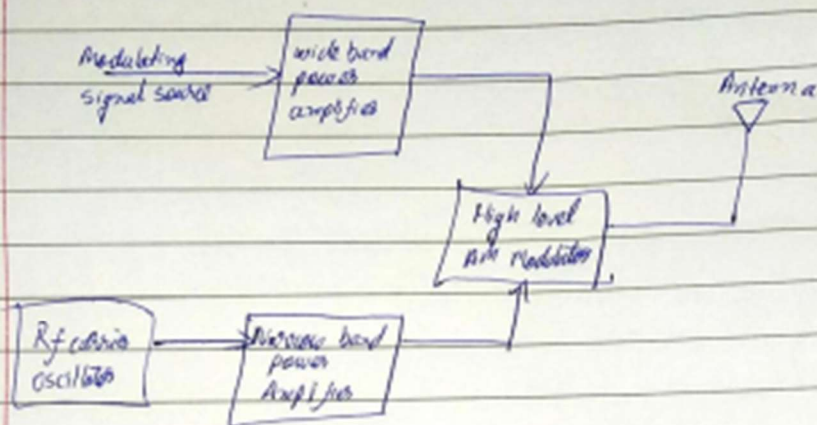 Modulating
signal source
wide band
power
amplifier
Antenna
High level
AM Modulator
Rf carrier
oscillator
Narrow band
power
Amplifier